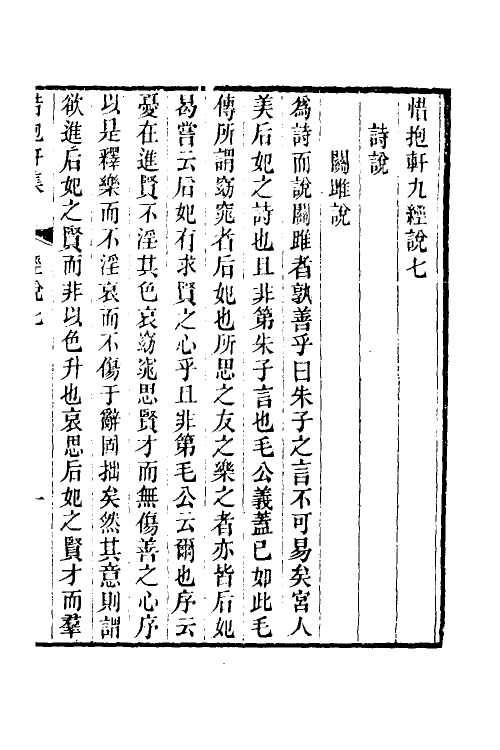 惜抱軒九經說七
詩說
關雎說
爲詩而說關雎者孰善乎曰朱子之言不可易矣宮人
美后妃之詩也且非第朱子言也毛公義蓋已如此毛
傳所謂窈窕者后妃也所思之友之樂之者亦皆后妃
曷嘗云后妃有求賢之心乎且非第毛公云爾也序云
憂在進賢不淫其色哀窈窕思賢才而無傷善之心序
以是釋樂而不淫哀而不傷于辭固拙矣然其意則謂
欲進后妃之賢而非以色升也哀思后妃之賢才而羣
惜抱軒集 經說七 一